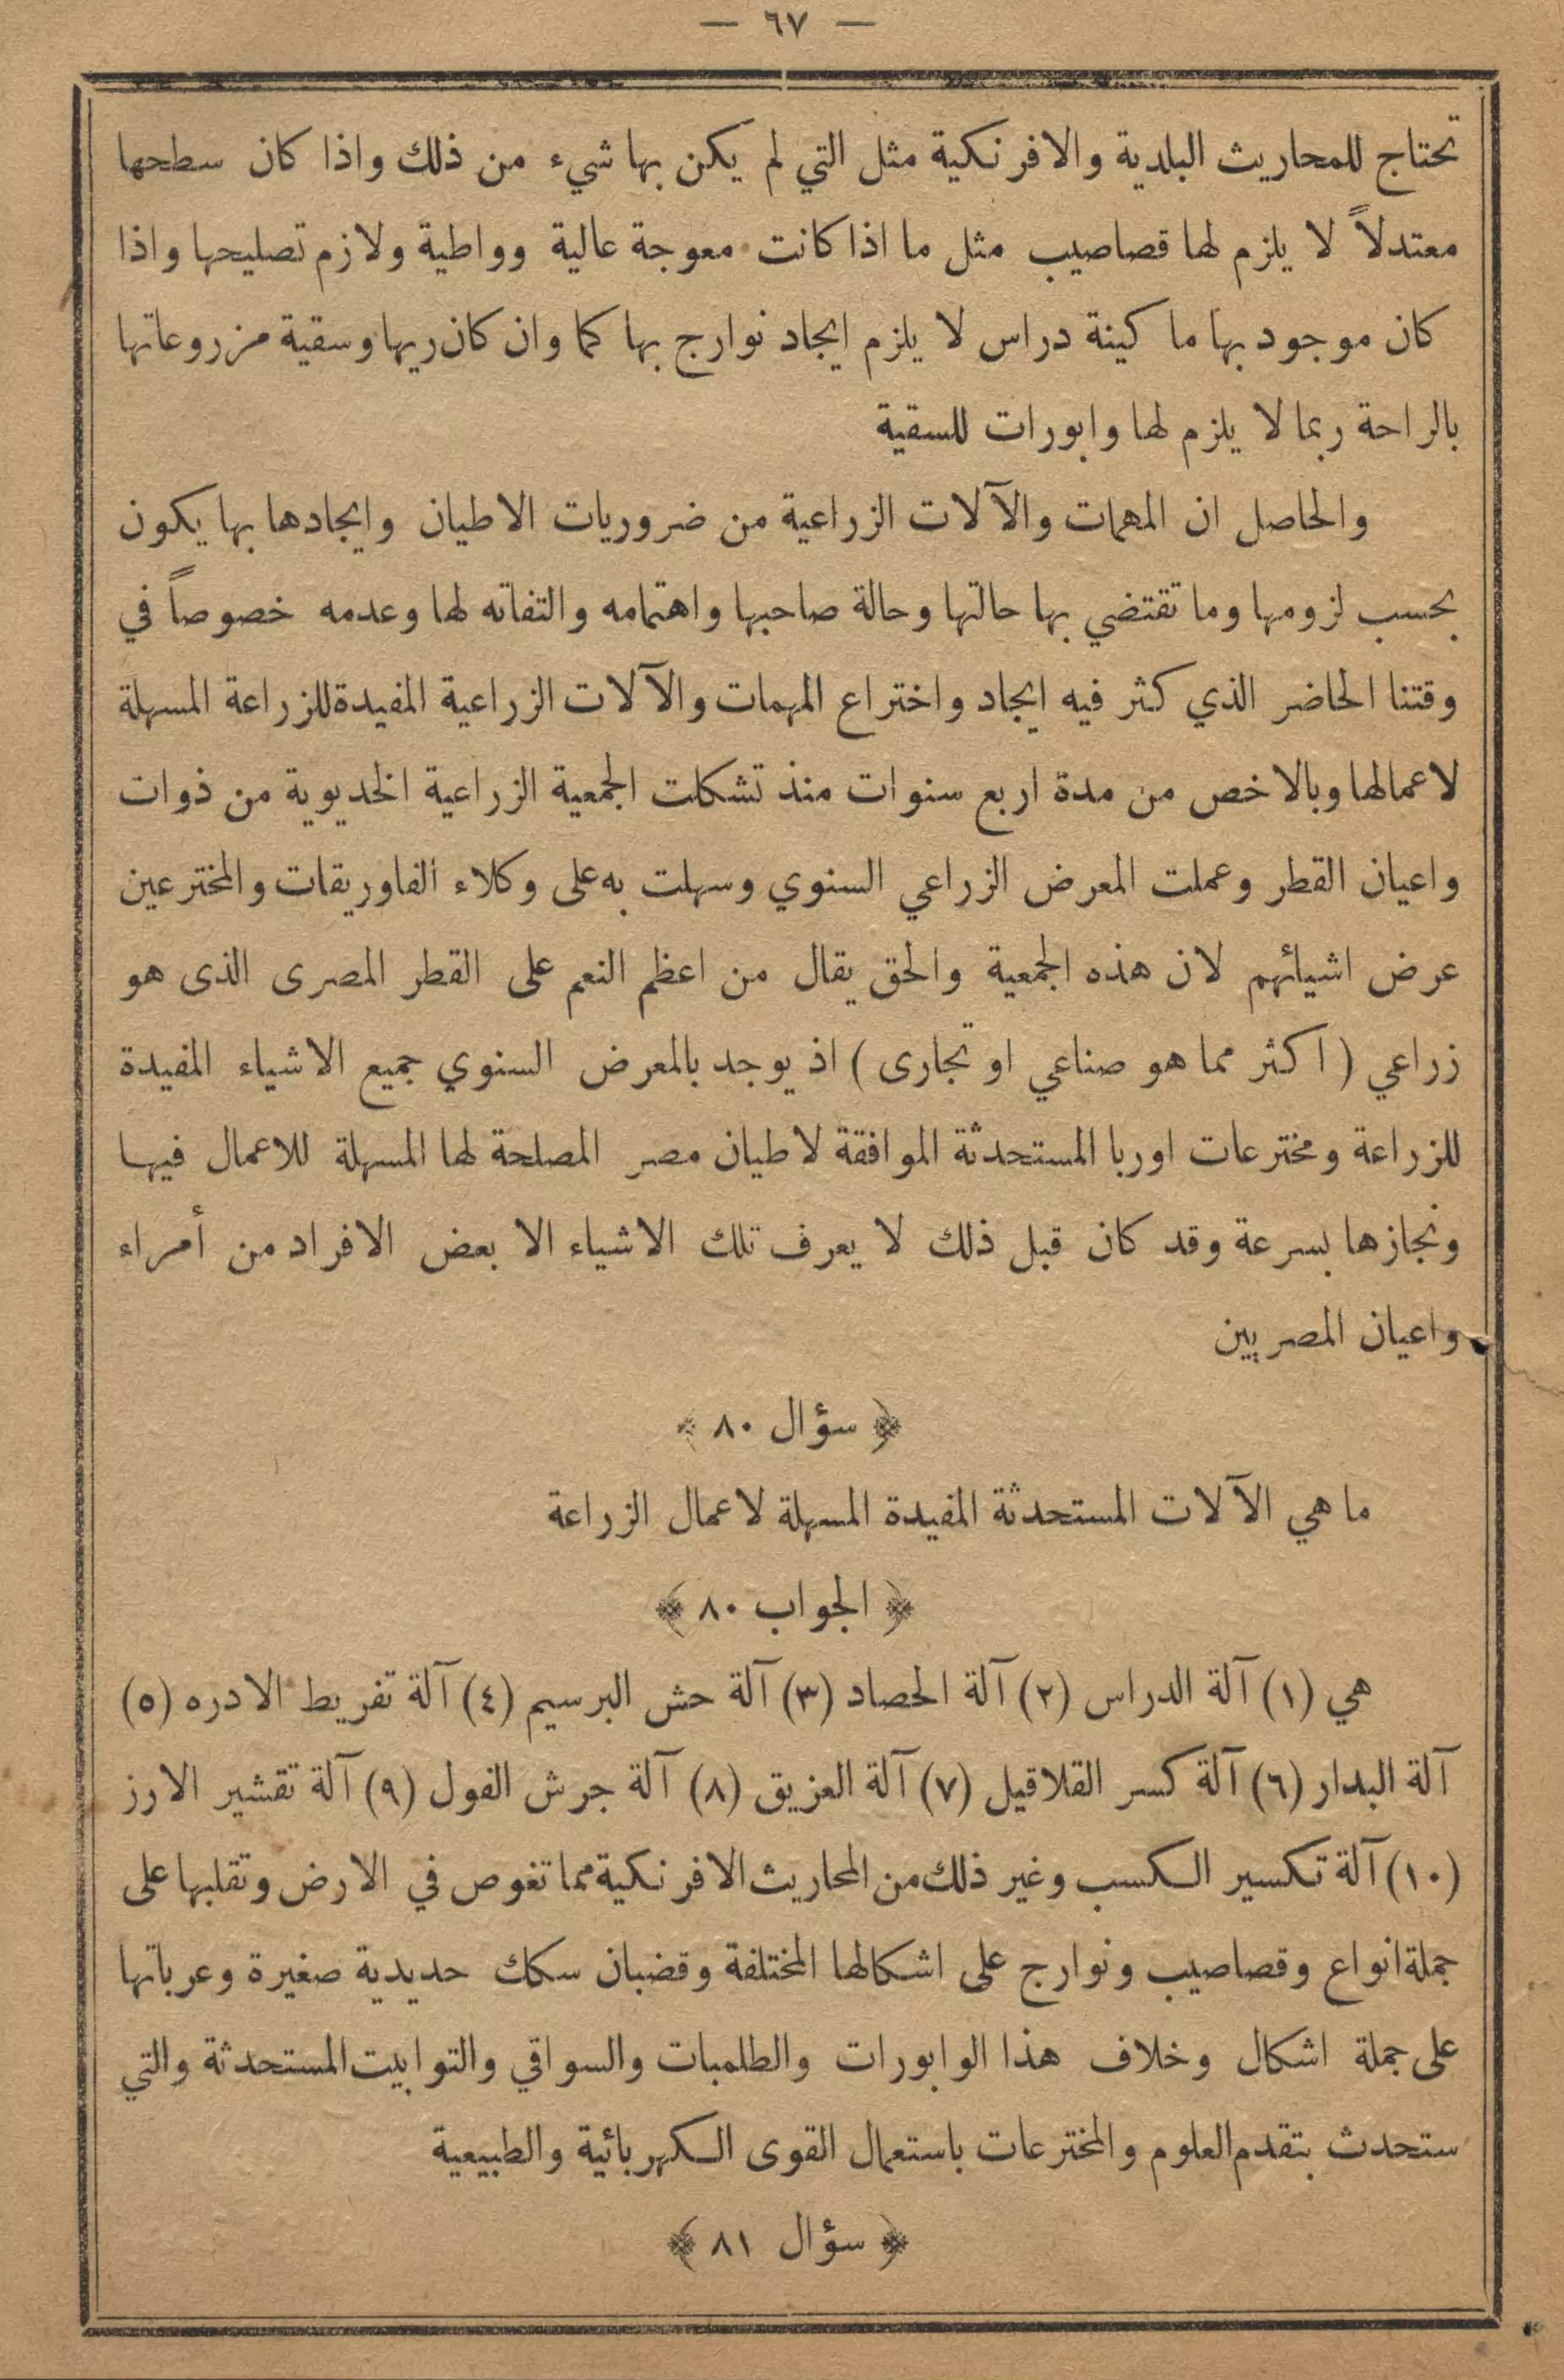 — ٦٧ —
تحتاج للمحاريث البلدية والافرنكية مثل التي لم يكن بها شيء من ذلك واذا كان سطحها
معتدلاً لا يلزم لها قصاصيب مثل ما اذا كانت معوجة عالية وواطية ولازم تصليحها واذا
كان موجود بها ما كينة دراس لا يلزم ايجاد نوارج بها كما وان كان ريها وسقية مزروعاتها
بالراحة ربما لا يلزم لها وابورات للسقية
والحاصل ان المهمات والآلات الزراعية من ضروريات الاطيان وايجادها بها يكون
بحسب لزومها وما تقتضي بها حالتها وحالة صاحبها واهتمامه والتفاته لها وعدمه خصوصاً في
وقتنا الحاضر الذي كثر فيه ايجاد واختراع المهمات والآلات الزراعية المفيدة للزراعة المسهلة
لاعمالها وبالاخص من مدة اربع سنوات منذ تشكلت الجمعية الزراعية الخديوية من ذوات
واعيان القطر وعملت المعرض الزراعي السنوي وسهلت به على وكلاء الفاوريقات والمخترعين
عرض اشيائهم لان هذه الجمعية والحق يقال من اعظم النعم على القطر المصرى الذى هو
زراعي ( اكثر مما هو صناعي او تجارى ) اذ يوجد بالمعرض السنوي جميع الاشياء المفيدة
للزراعة ومخترعات اوربا المستحدثة الموافقة لاطيان مصر المصلحة لها المسهلة للاعمال فيها
ونجازها بسرعة وقد كان قبل ذلك لا يعرف تلك الاشياء الا بعض الافراد من أمراء
واعيان المصريين
﴿ سؤال ٨٠ ﴾
ما هي الآلات المستحدثة المفيدة المسهلة لاعمال الزراعة
﴿ الجواب ٨٠ ﴾
هي (١) آلة الدراس (٢) آلة الحصاد (٣) آلة حش البرسيم (٤) آلة تفريط الادره (٥)
آلة البدار (٦) آلة كسر القلاقيل (٧) آلة العزيق (٨) آلة جرش الفول (٩) آلة تقشير الارز
(١٠) آلة تكسير الكسب وغير ذلك من المحاريث الافرنكية مما تغوص في الارض وتقلبها على
جملة انواع وقصاصيب ونوارج على اشكالها المختلفة وقضبان سكك حديدية صغيرة وعرباتها
على جملة اشكال وخلاف هذا الوابورات والطلمبات والسواقي والتوابيت المستحدثة والتي
ستحدث بتقدم العلوم والمخترعات باستعمال القوى الكهربائية والطبيعية
﴿ سؤال ٨١ ﴾